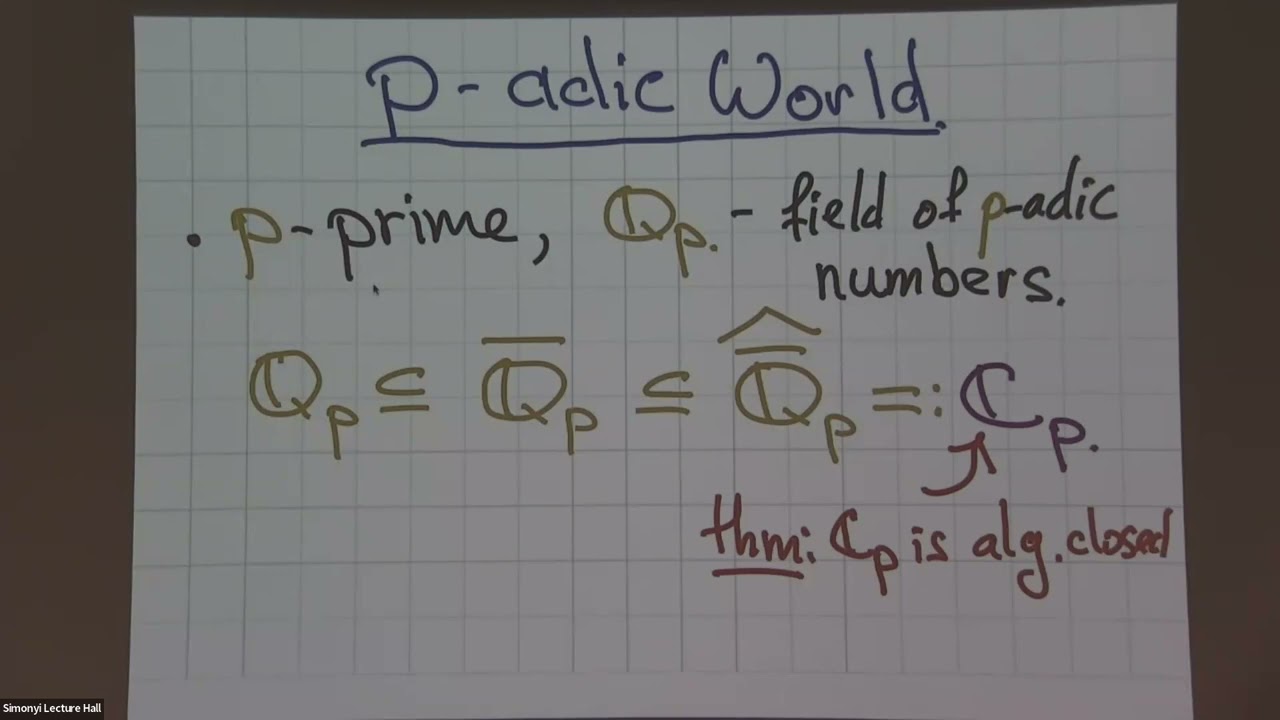 p-adic World.
• p-prime, ℚₚ. - field of p-adic
numbers.
ℚₚ ⊆ ℚ̅ₚ ⊆ ℚ̅̂ₚ =: ℂₚ.
thm: ℂₚ is alg. closed
Simonyi Lecture Hall